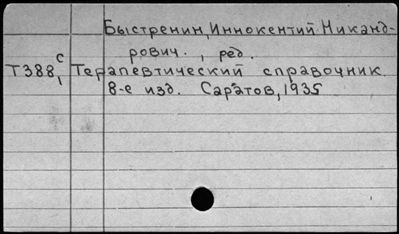 Быстренин, Иннокентий Никанд-
рович., ред.
Т388 с1 Терапевтический справочник.
8-е изд. Саратов, 1935